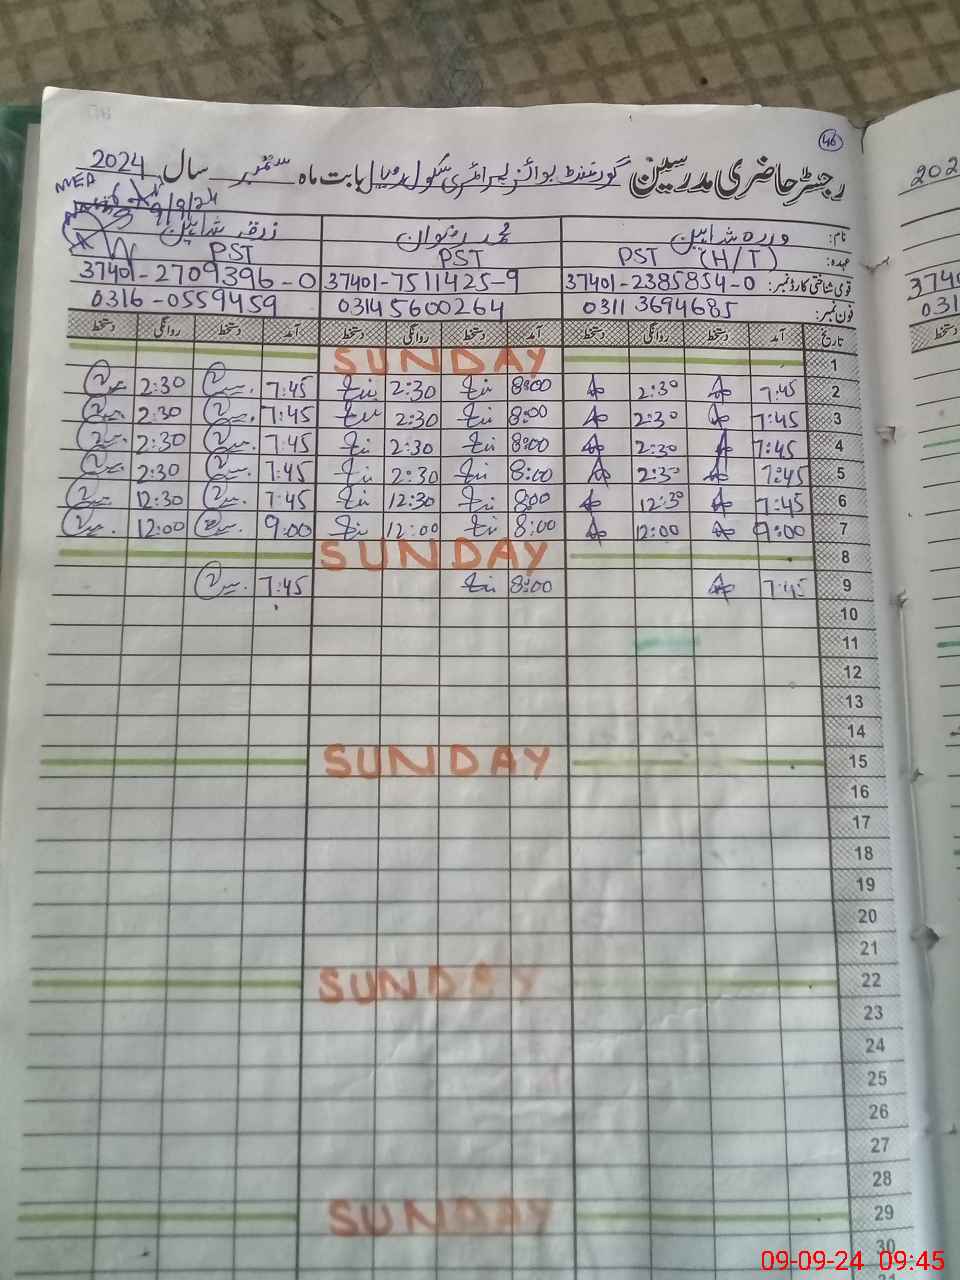 46
رجسٹر حاضری مدرسین گورنمنٹ بوائز پرائمری سکول بابت ماہ ستمبر سال 2024
9/9/24
نام: وردہ شاہین محمد رضوان زرقہ شاہین
عہدہ: PST (H/T) PST PST
قومی شناختی کارڈ نمبر: 37401-2385854-0 37401-7511425-9 37401-2709396-0
فون نمبر: 0311 3694685 03145600264 0316-0559459
تاریخ آمد دستخط روانگی دستخط آمد دستخط روانگی دستخط آمد دستخط روانگی دستخط
1 SUNDAY
2 7:45 2:30 8:00 2:30 7:45 2:30
3 7:45 2:30 8:00 2:30 7:45 2:30
4 7:45 2:30 8:00 2:30 7:45 2:30
5 7:45 2:30 8:00 2:30 7:45 2:30
6 7:45 12:30 8:00 12:30 7:45 12:30
7 9:00 12:00 8:00 12:00 9:00 12:00
8 SUNDAY
9 7:45 8:00 7:45
10
11
12
13
14
15 SUNDAY
16
17
18
19
20
21
22 SUNDAY
23
24
25
26
27
28
29 SUNDAY
30
202
3740
031
دستخط
09-09-24 09:45